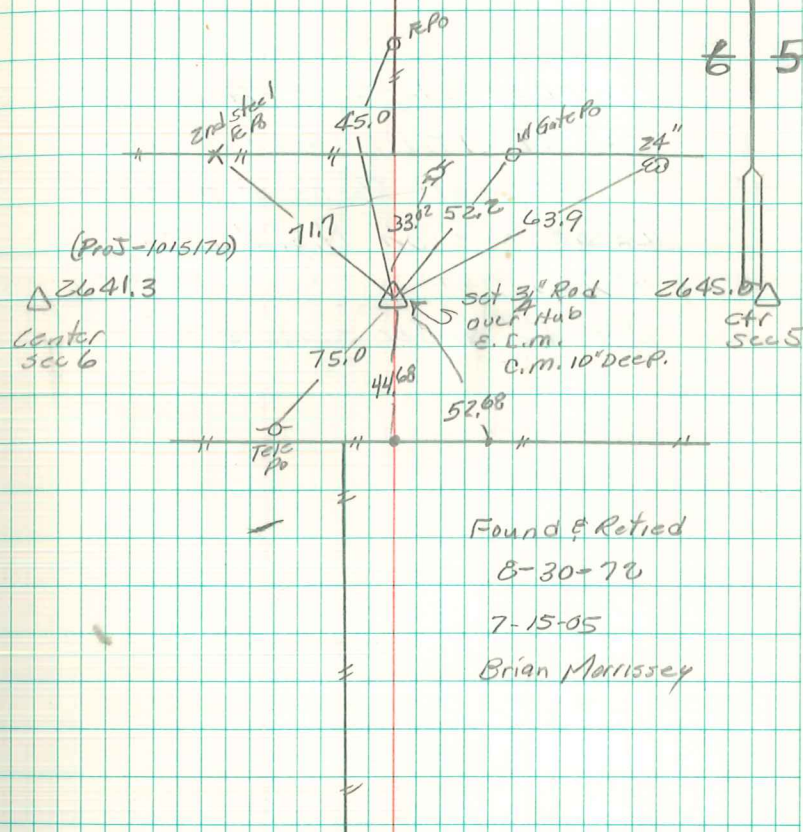 FePo
6 5
2nd steel
FePo
45.0
W GatePo
24"
71.7
33.02
52.2
63.9
(Proj-1015170)
2641.3
Center
Sec 6
set 3/4" Rod
over Hub
& C.M.
C.M. 10" Deep.
2645.0
Ctr
Sec 5
75.0
44.68
52.68
Tele
Po
Found & Retied
8-30-72
7-15-05
Brian Morrissey